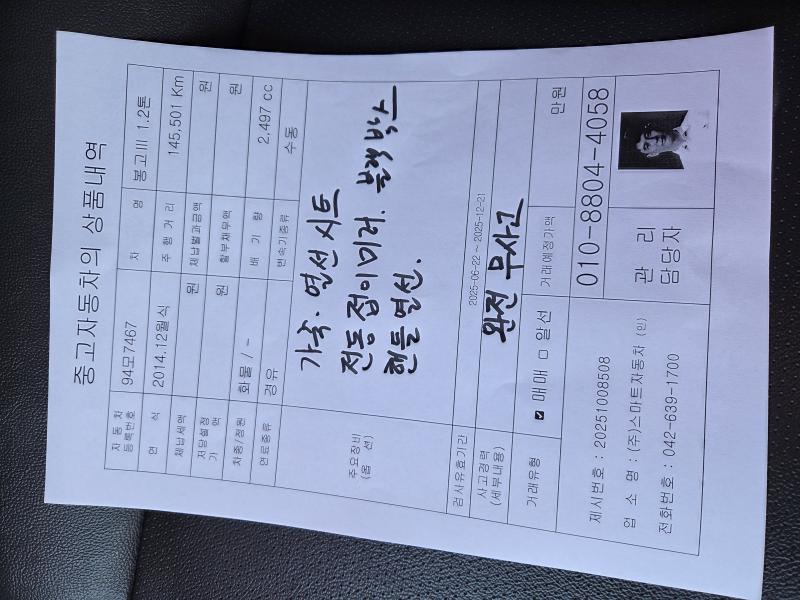 중고자동차의 상품내역
자동차 등록번호 94모7467 차 명 봉고III 1.2톤
연 식 2014.12월식 주행거리 145,501 Km
체납세액 원 체납벌과금액 원
저당설정가액 원 할부채무액 원
차종/정원 화물 / - 배 기 량 2,497 cc
연료종류 경유 변속기종류 수동
주요장비 (옵 션)
가죽. 열선시트
전동접이미러. 블랙박스
핸들열선.
검사유효기간 2025-06-22 ~ 2025-12-21
사고경력 (세부내용) 완전 무사고
거래유형 매매 알선 거래예정가액 만원
제시번호 : 20251008508
업 소 명 : (주)스마트자동차 (인)
전화번호 : 042-639-1700
관 리 담당자
010-8804-4058